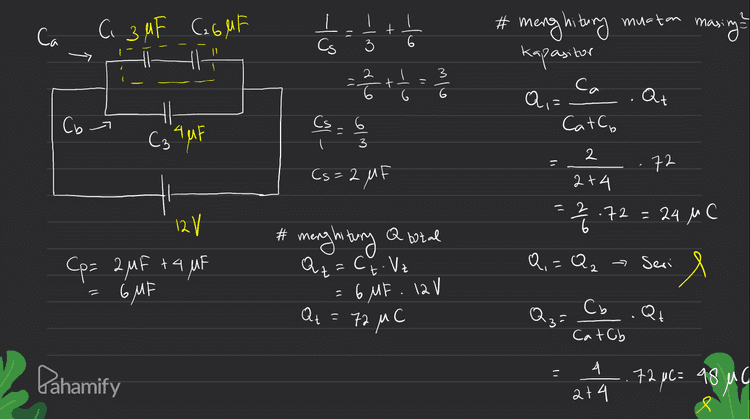 Ca C₁ 3 μF C₂ 6 μF
Cb C₃ 4 μF
12 V
Cp = 2 μF + 4 μF
= 6 μF
1/Cs = 1/3 + 1/6
= 2/6 + 1/6 = 3/6
Cs/1 = 6/3
Cs = 2 μF
# menghitung Q total
Qt = Ct . Vt
= 6 μF . 12 V
Qt = 72 μC
# menghitung muatan masing²
kapasitor
Q₁ = Ca/(Ca+Cb) . Qt
= 2/(2+4) . 72
= 2/6 . 72 = 24 μC
Q₁ = Q₂ → Seri
Q₃ = Cb/(Ca+Cb) . Qt
= 4/(2+4) . 72 μC = 48 μC
Pahamify